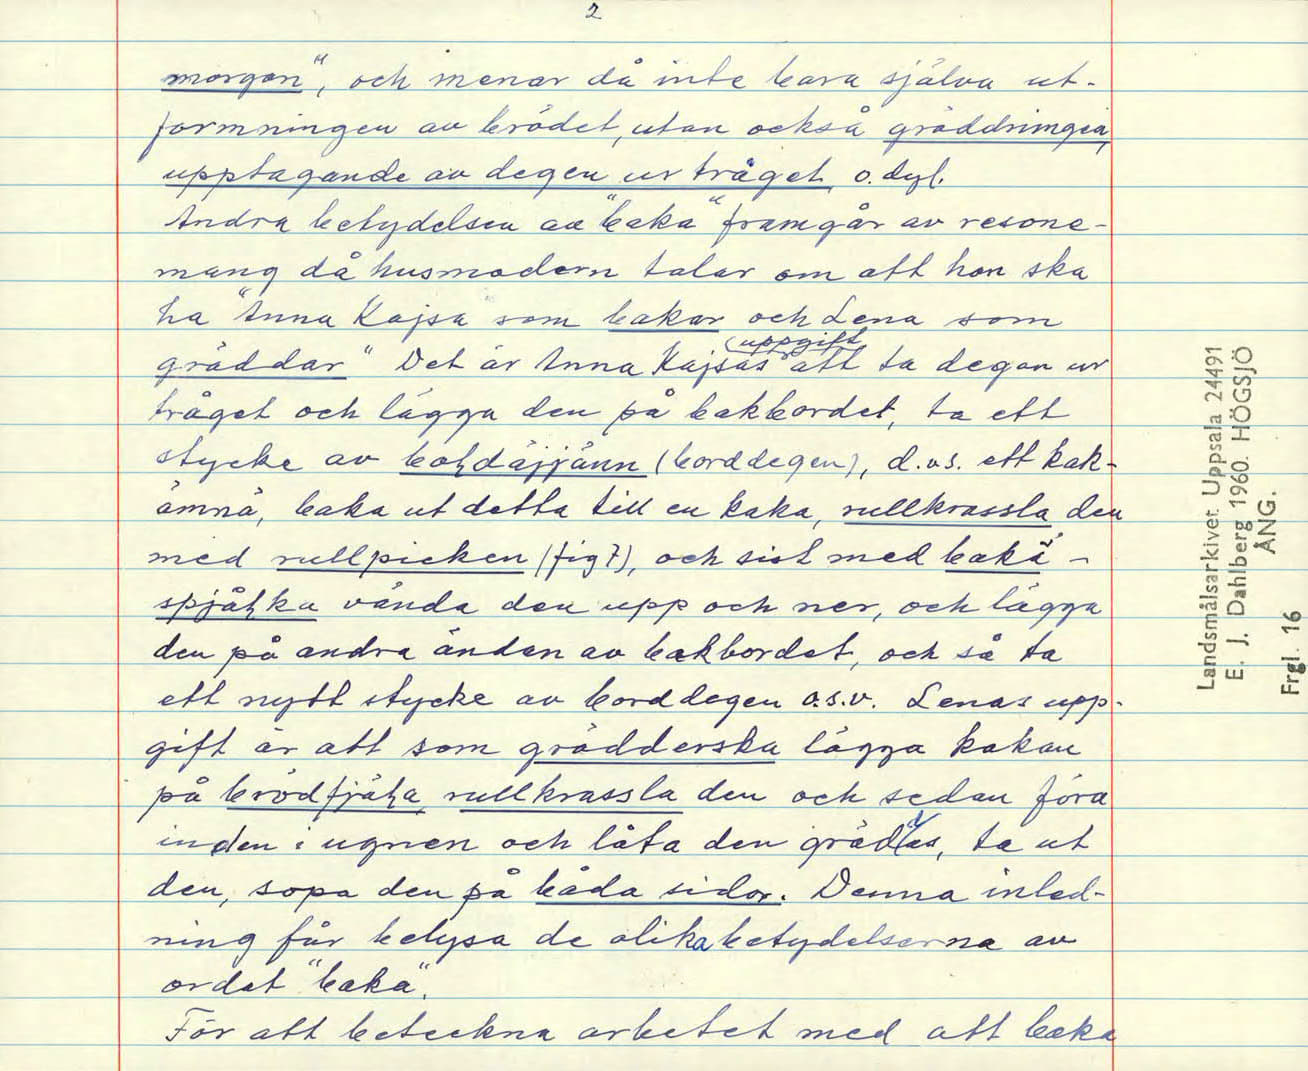 2
morgon", och menar då inte bara själva ut-
formningen av brödet, utan också gräddningen,
upptagande av degen ur tråget, o. dyl.
Andra betydelsen av "baka" framgår av resone-
mang då husmodern talar om att hon ska
ha "Anna Kajsa som bakar och Lena som
gräddar" Det är Anna Kajsas uppgift att ta degen ur
tråget och lägga den på bakbordet, ta ett
stycke av (borddegen), d.v.s. ett kak-
ämnä, baka ut detta till en kaka, rullkrassla den
med rullpicken (fig 7), och sist med bakä-
vända den upp och ner, och lägga
den på andra änden av bakbordet, och så ta
ett nytt stycke av borddegen o.s.v. Lenas upp-
gift är att som grädderska lägga kakan
på rullkrassla den och sedan föra
in den i ugnen och låta den gräddas, ta ut
den, sopa den på båda sidor. Denna inled-
ning får belysa de olika betydelserna av
ordet "baka".
För att beteckna arbetet med att baka
Landsmålsarkivet Uppsala 24491
E. J. Dahlberg 1960. HÖGSJÖ
ÅNG.
Frgl. 16